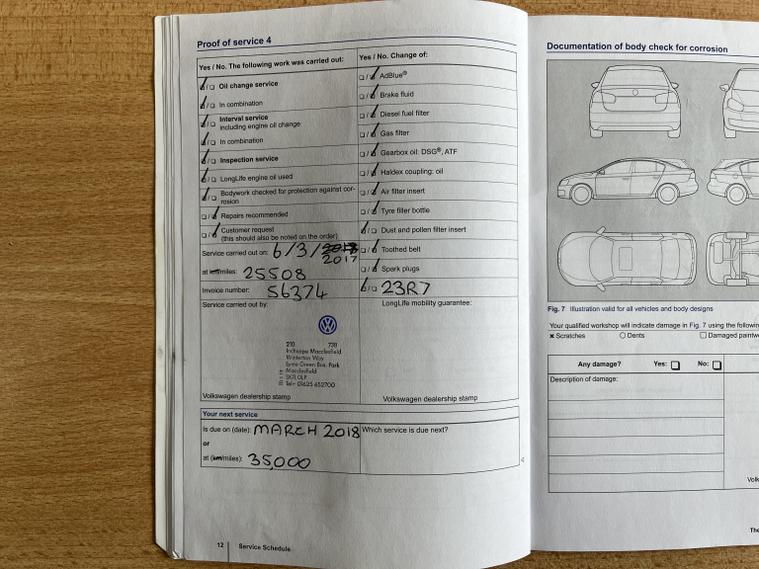 Proof of service 4
Yes / No. The following work was carried out:
Oil change service
In combination
Interval service
including engine oil change
In combination
Inspection service
LongLife engine oil used
Bodywork checked for protection against cor-
rosion
Repairs recommended
Customer request
(this should also be noted on the order)
Service carried out on: 6/3/2018
2017
at km/miles: 25508
Invoice number: 56374
Service carried out by:
210 738
Inchcape Macclesfield
Winterton Way
Lyme Green Bus. Park
Macclesfield
SK11 0LP
Tel: 01625 412700
Volkswagen dealership stamp
Yes / No. Change of:
AdBlue®
Brake fluid
Diesel fuel filter
Gas filter
Gearbox oil: DSG®, ATF
Haldex coupling: oil
Air filter insert
Tyre filler bottle
Dust and pollen filter insert
Toothed belt
Spark plugs
23R7
LongLife mobility guarantee:
Volkswagen dealership stamp
Your next service
Is due on (date): MARCH 2018
or
at (km/miles): 35,000
Which service is due next?
12 Service Schedule
Documentation of body check for corrosion
Fig. 7 Illustration valid for all vehicles and body designs
Your qualified workshop will indicate damage in Fig. 7 using the followin
Scratches Dents Damaged paintw
Any damage? Yes: No:
Description of damage:
Volk
The